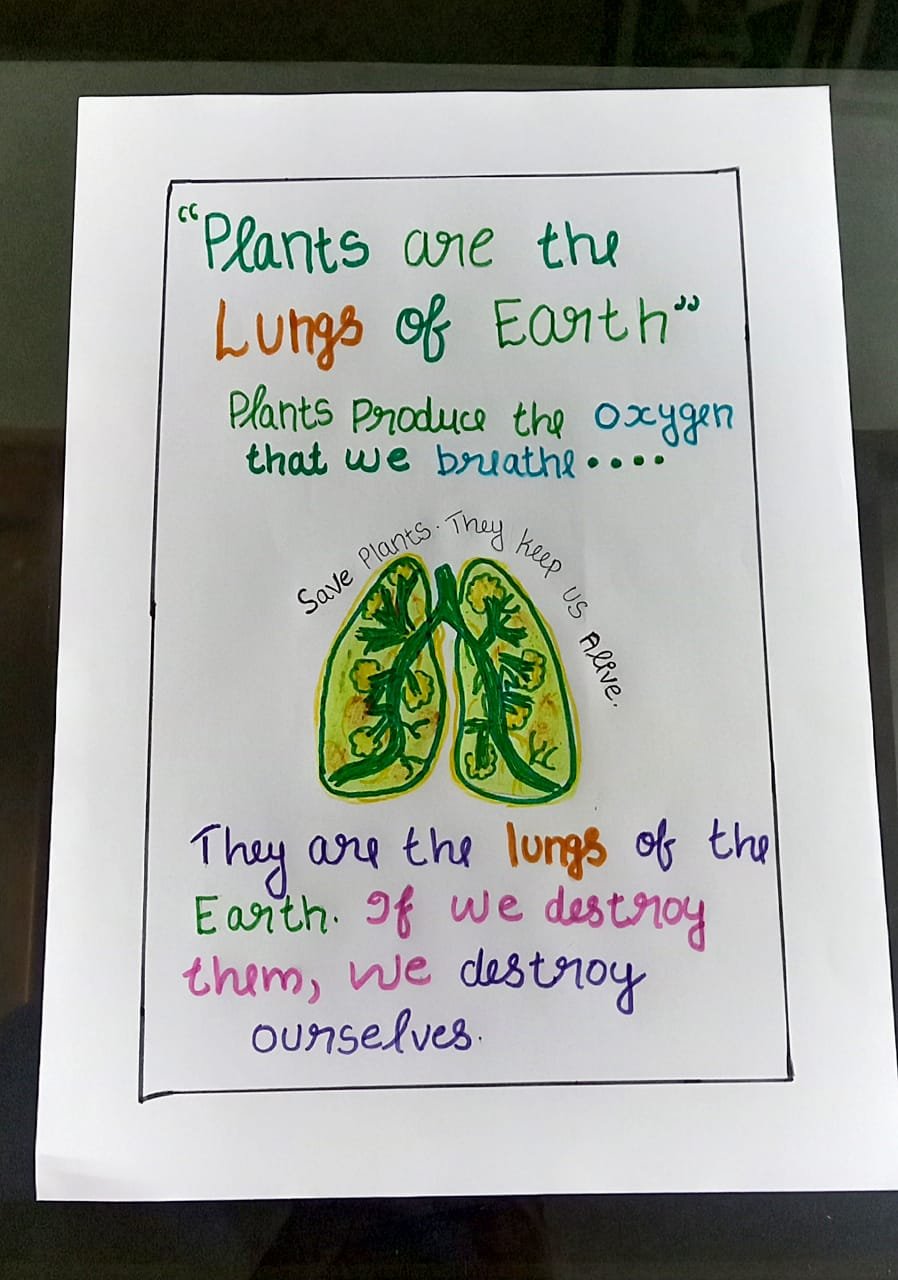 “Plants are the
Lungs of Earth”
Plants Produce the oxygen
that we breathe....
Save Plants. They keep us Alive.
They are the lungs of the
Earth. If we destroy
them, we destroy
ourselves.